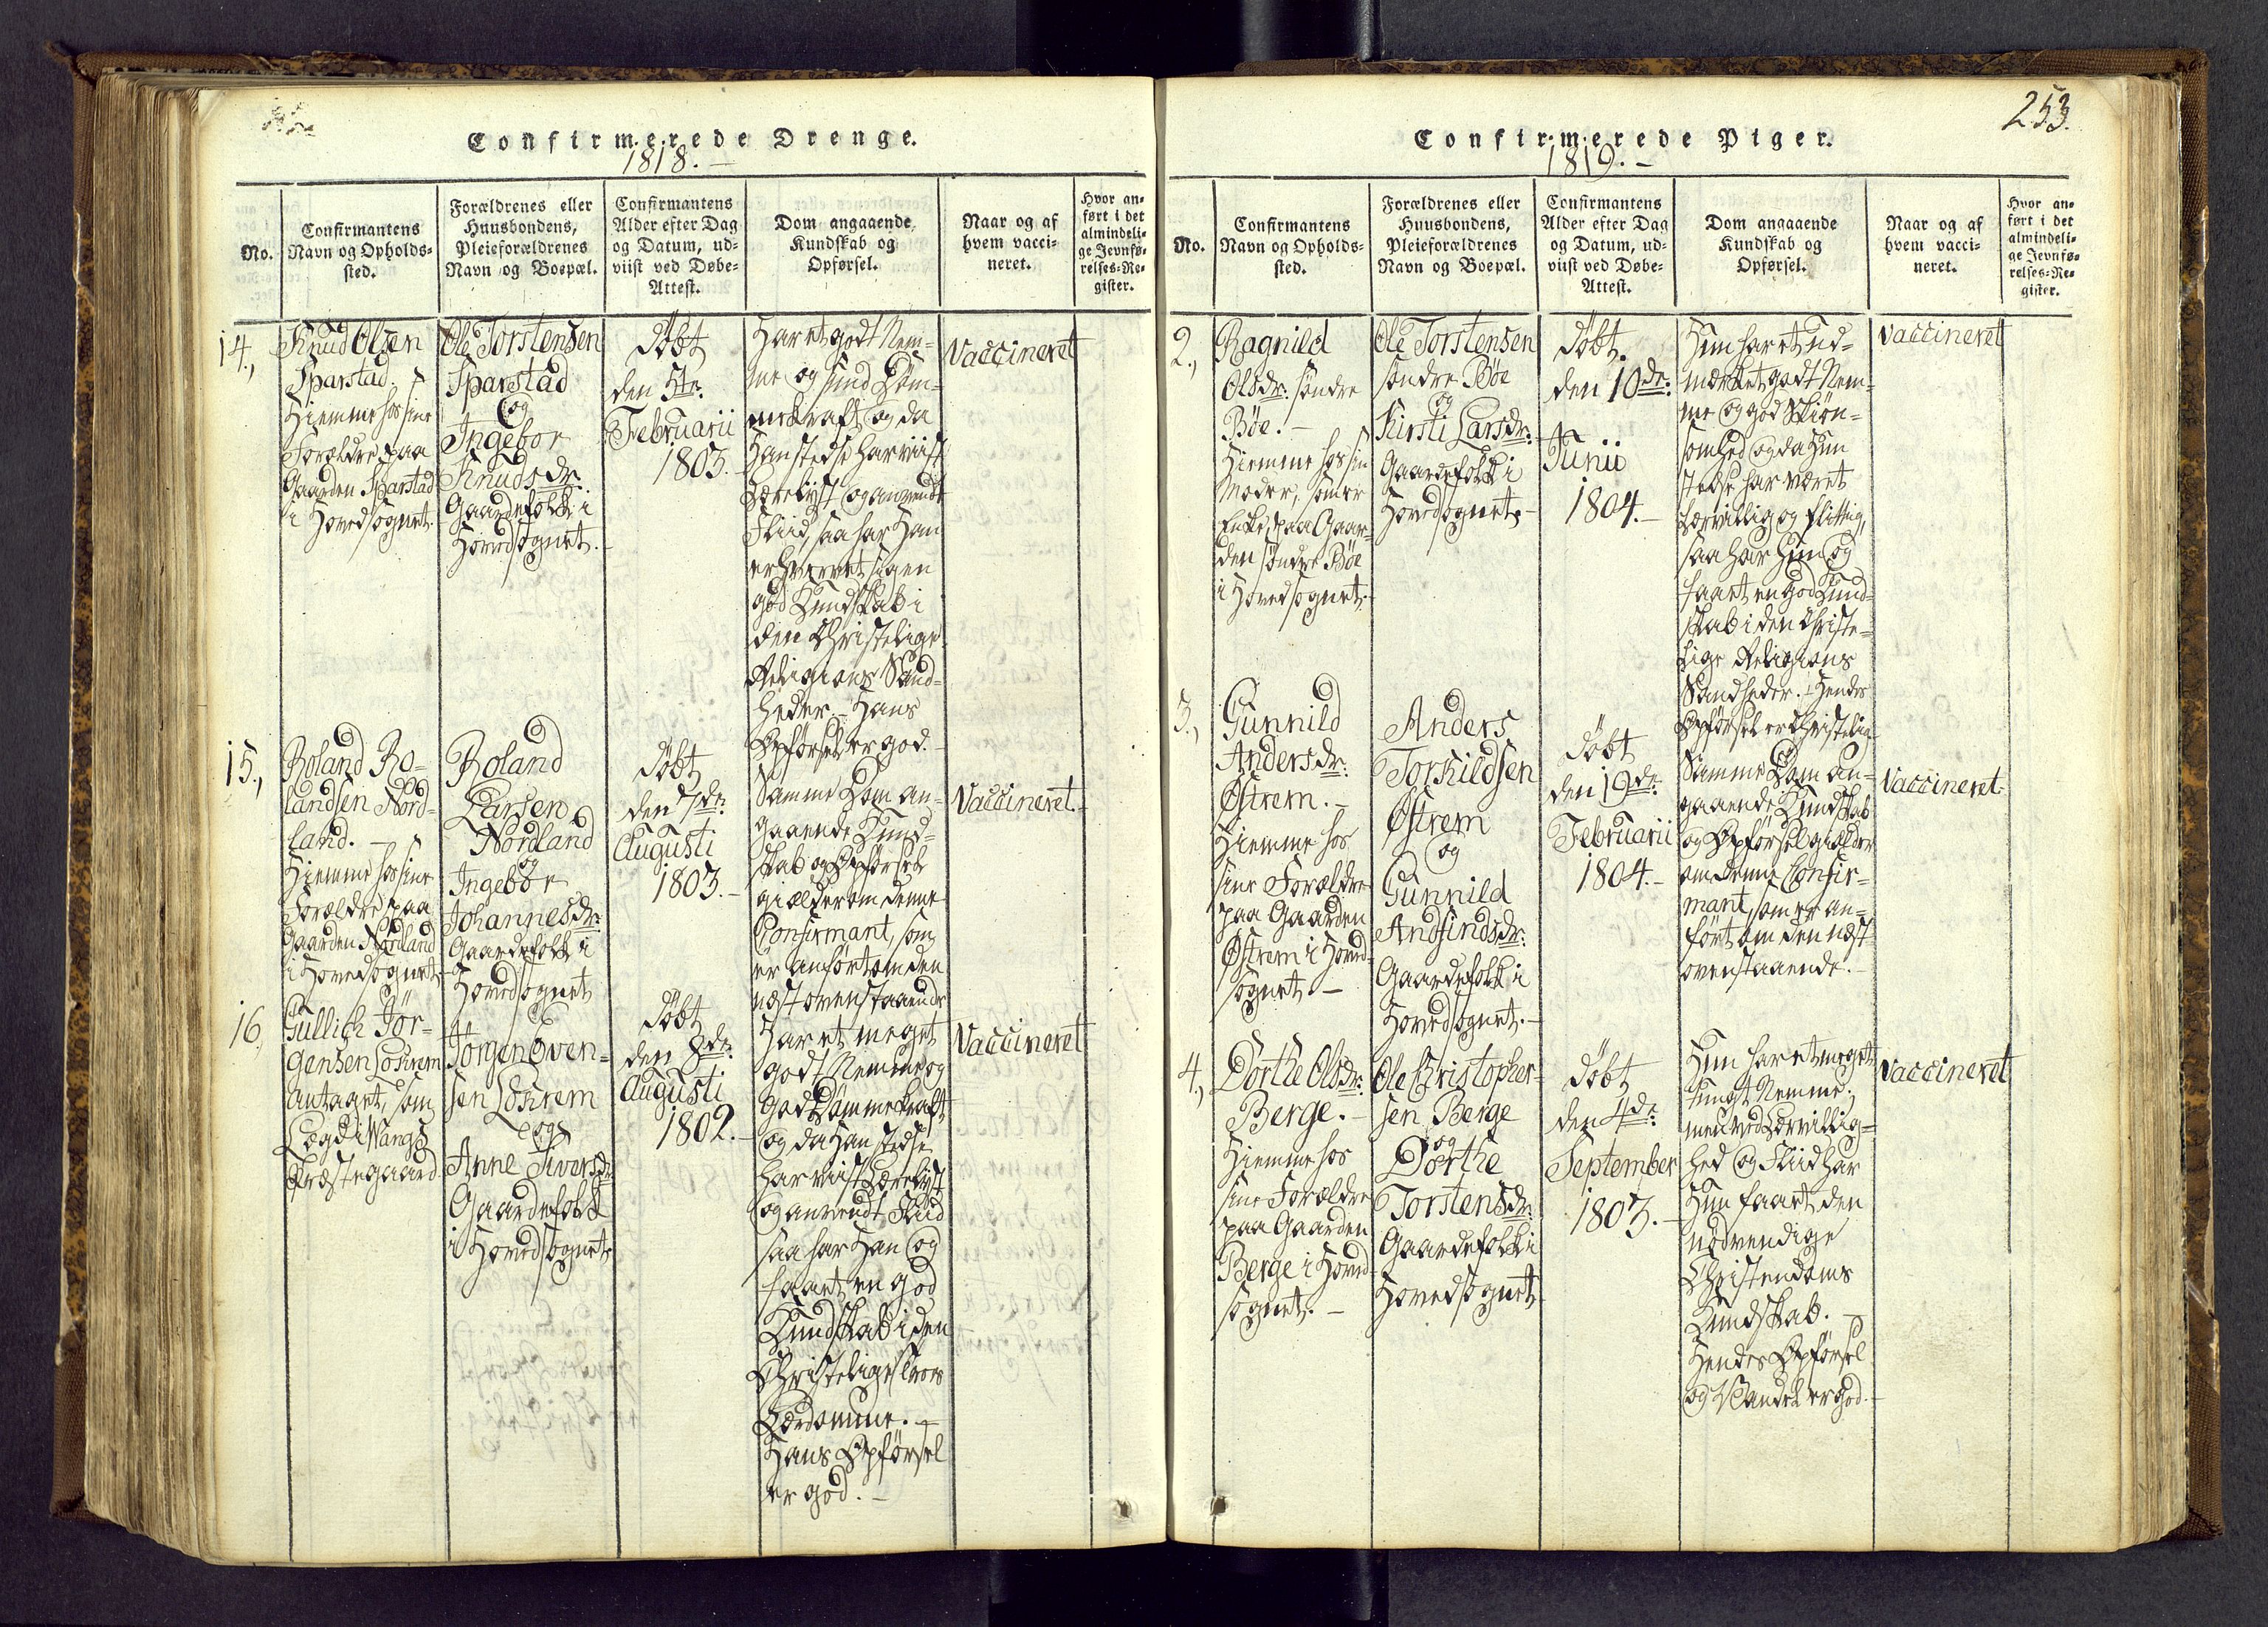 Confirmerede Drenge.
1818. –
No.
Confirmantens
Navn og Opholds-
sted.
Forældrenes eller
Huusbondens,
Pleieforældrenes
Navn og Boepæl.
Confirmantens
Alder efter Dag
og Datum, ud-
viist ved Døbe-
Attest.
Dom angaaende
Kundskab og
Opførsel.
Naar og af
hvem vacci-
neret.
Hvor an-
ført i det
almindeli-
ge Jevnfø-
relses-Re-
gister.
14.,
Knud Olsen
Sparstad.
Hiemme hos sine
Forældre paa
Gaarden Sparstad
i Hovedsognet.
Ole Torstensen
Sparstad
og
Ingebor
Knudsdr.
Gaardefolk i
Hovedsognet.
Døbt
den 5te
Februarii
1803.
Har et godt Nem-
me og sund Døm-
mekraft og da
Han stedse har viist
Lærelyst og anvendt
Fliid, saa har Han
erhvervet sig en
god Kundskab i
den Christelige
Religions Sand-
heder. – Hans
Opførsel er god. –
Vaccineret
15.,
Roland Ro-
landsen Nord-
land. –
Hiemme hos sine
Forældre paa
Gaarden Nordland
i Hovedsognet
Roland
Larsen
Nordland
og
Ingebor
Johannesdr.
Gaardefolk i
Hovedsognet
Døbt
den 7de
Augusti
1803. –
Samme Dom an-
gaaende Kund-
skab og Opførsel
gielder om denne
Confirmant, som
er anført om den
næst ovenstaaende
Vaccineret.
16,
Gullich Jør-
gensen Løkrem
antaget, som
Lægd i Wangs
Præstegaard.
Jørgen Even-
sen Løkrem
og
Anne Iversdr.
Gaardefolk
i Hovedsognet
Døbt
den 8de
Augusti
1802. –
Har et meget
godt Nemme og
god Dømmekraft
og da Han stedse
har viist Lærelyst
og anvendt Fliid
saa har Han og
faaet en god
Kundskab i den
Christelige Troes
Lærdomme. –
Hans Opførsel
er god. –
Vaccineret
253.
Confirmerede Piger.
1819. –
No.
Confirmantens
Navn og Opholds-
sted.
Forældrenes eller
Huusbondens,
Pleieforældrenes
Navn og Boepæl.
Confirmantens
Alder efter Dag
og Datum, ud-
viist ved Døbe-
Attest.
Dom angaaende
Kundskab og
Opførsel.
Naar og af
hvem vacci-
neret.
Hvor an-
ført i det
almindeli-
ge Jevnfø-
relses-Re-
gister.
2.,
Ragnild
Olsdr. søndre
Bøe. –
Hiemme hos sin
Moder, som er
Enke paa Gaar-
den søndre Bøe
i Hovedsognet.
Ole Torstensen
søndre Bøe
og
Kirsti Larsdr.
Gaardefolk i
Hovedsognet. –
Døbt.
den 10de
Junii
1804. –
Hun har et ud-
mærket godt Nem-
me og god Skiøn-
somhed og da Hun
stedse har været
Lærvillig og flittig,
saa har Hun og
faaet en god Kund-
skab i den Christe-
lige Religions
Sandheder. – Hendes
Opførsel er Christelig
Vaccineret
3.,
Gunnild
Andersdr.
Østrem. –
Hiemme hos
sine Forældre
paa Gaarden
Østrem i Hoved-
sognet. –
Anders
Torkildsen
Østrem
og
Gunnild
Andfindsdr.
Gaardefolk i
Hovedsognet. –
Døbt
den 19de
Februarii
1804. –
Samme Dom an-
gaaende Kundskab
og Opførsel gielder
om denne Confir-
mant, som er an-
ført om den næst
ovenstaaende. –
Vaccineret.
4.,
Dorthe Olsdr.
Berge. –
Hiemme hos
sine Forældre
paa Gaarden
Berge i Hoved-
sognet. –
Ole Christopher-
sen Berge
og
Dorthe
Torstensdr.
Gaardefolk i
Hovedsognet
Døbt
den 4de
September
1803. –
Hun har et meget
tungt Nemme;
men ved Lærvillig-
hed og Fliid har
Hun faaet den
nødvendige
Christendoms
Kundskab. –
Hendes Opførsel
og Vandel er god. –
Vaccineret